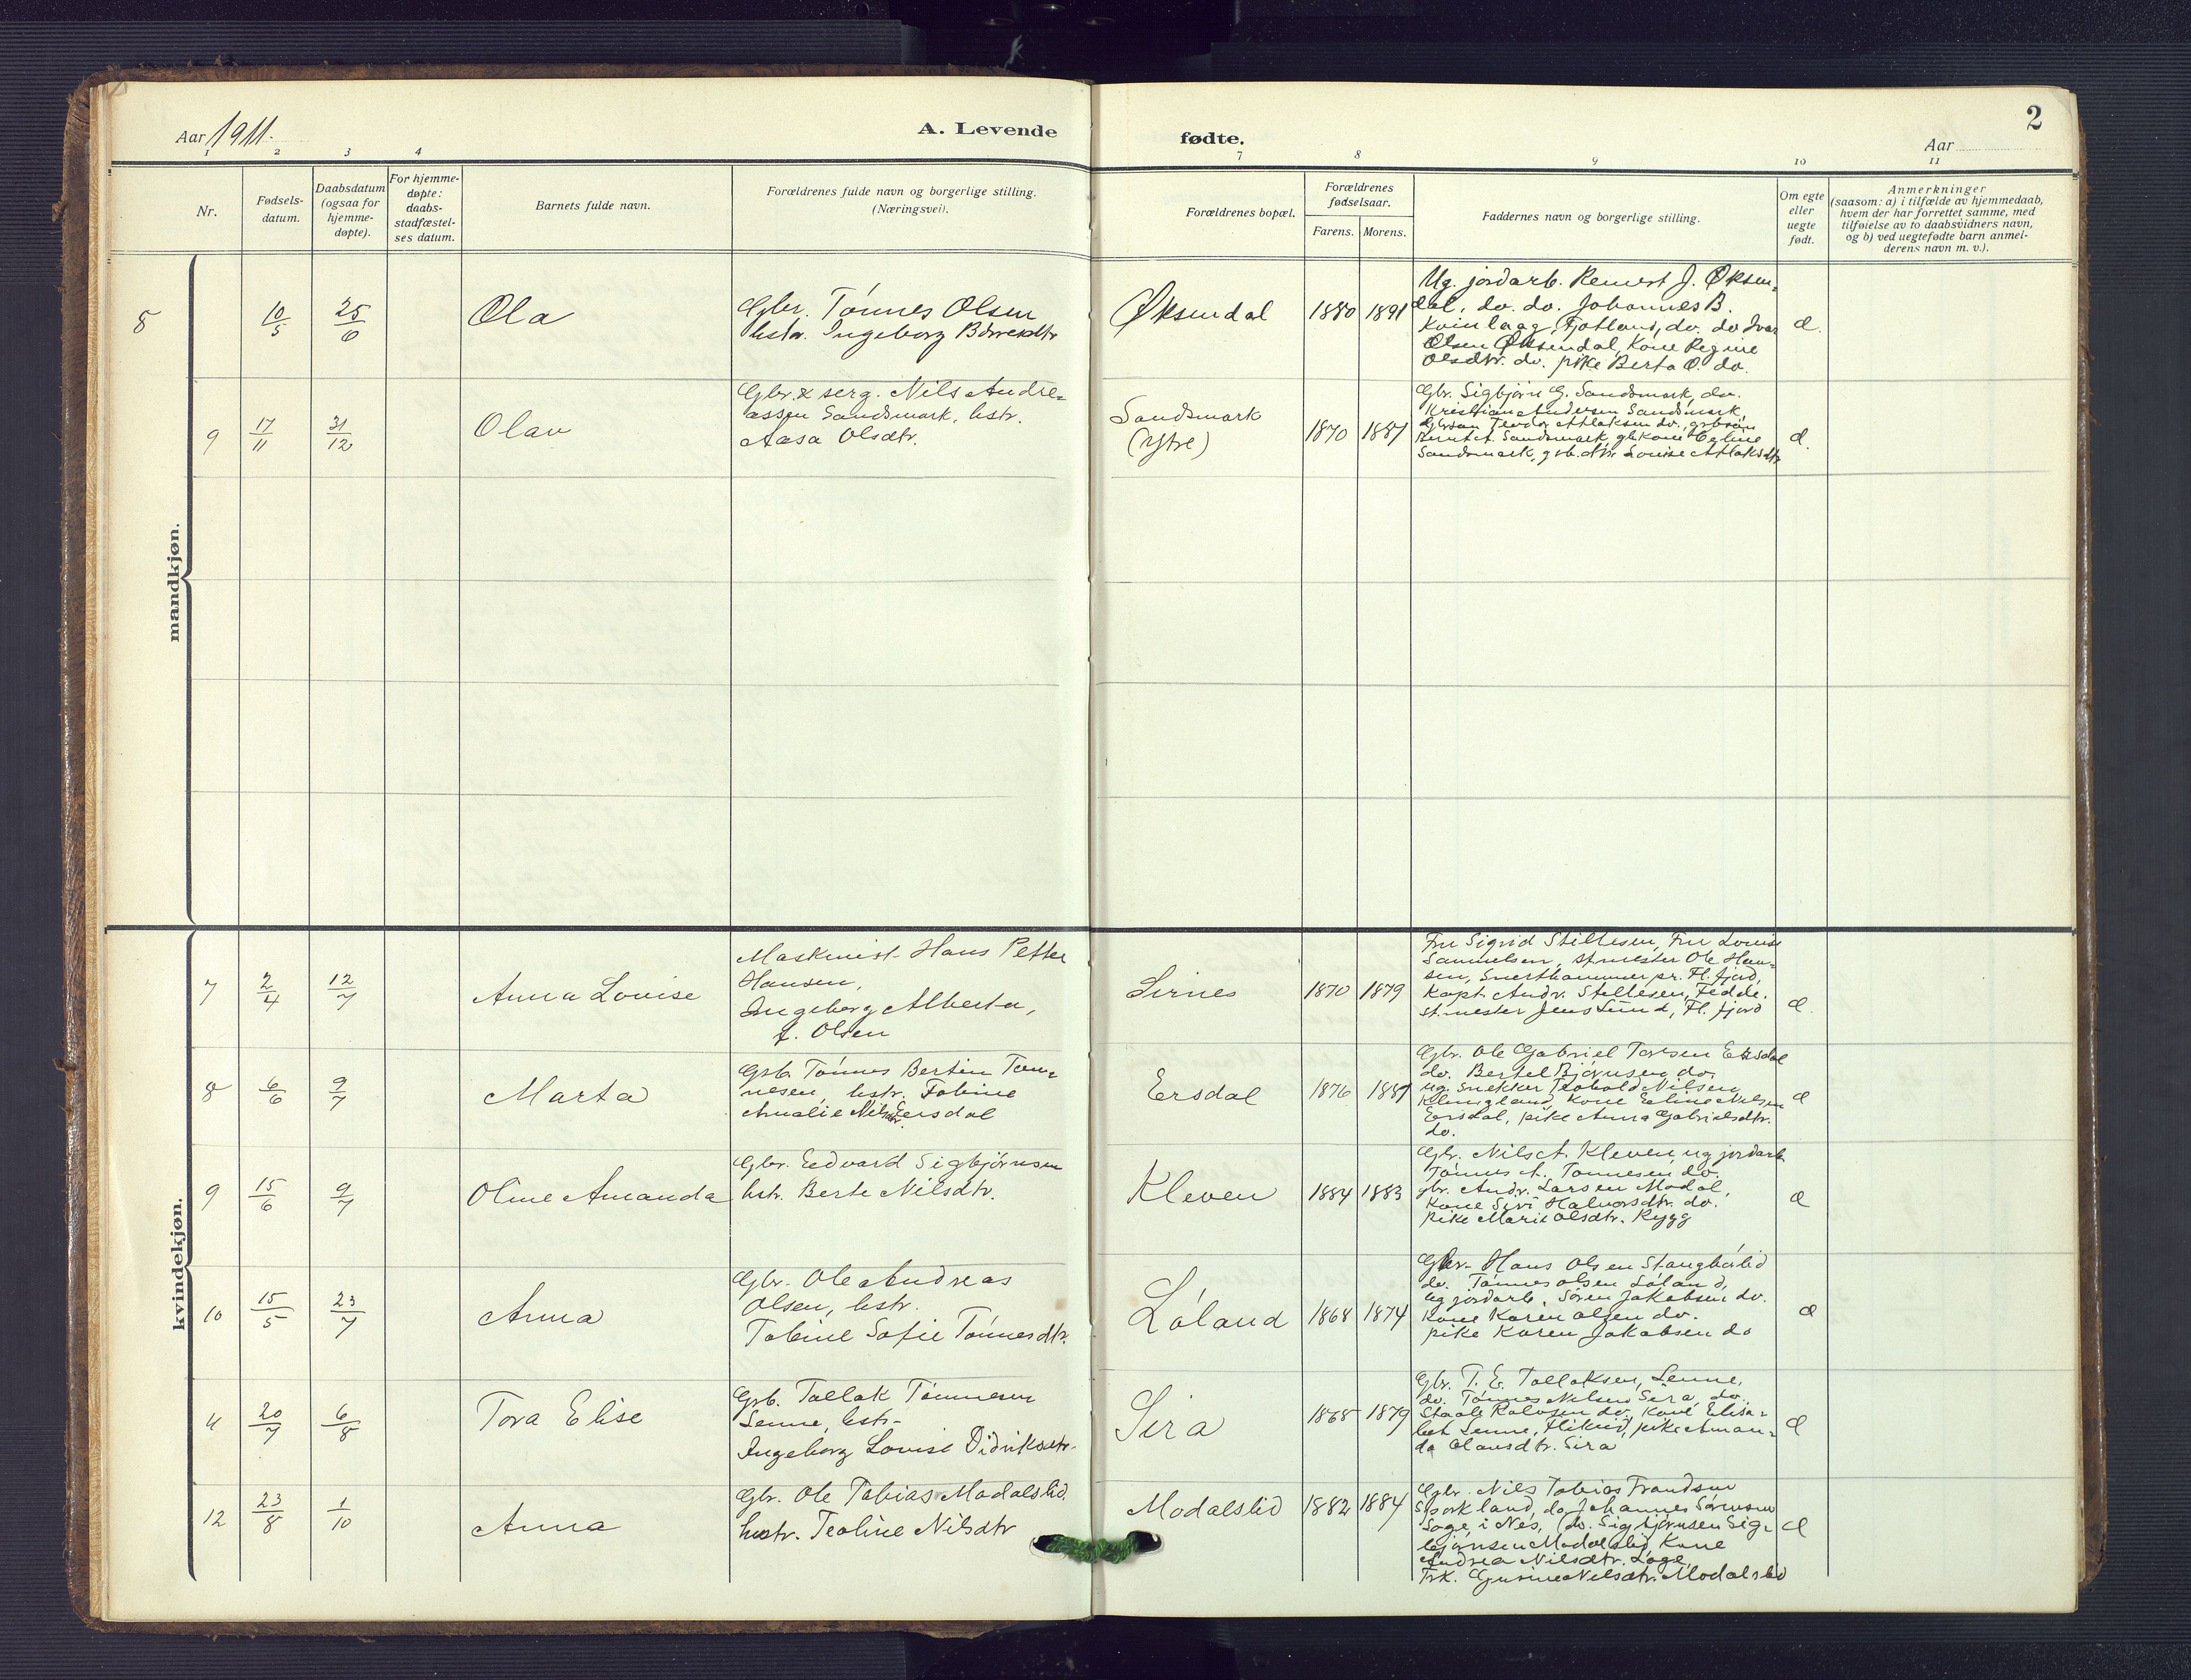 2
Aar 1911.
A. Levende
fødte.
Aar
1 2 3 4
7 8 9 10 11
Nr.
Fødsels-
datum.
Daabsdatum
(ogsaa for
hjemme-
døpte).
For hjemme-
døpte:
daabs-
stadfæstel-
ses datum.
Barnets fulde navn.
Forældrenes fulde navn og borgerlige stilling.
(Næringsvei).
Forældrenes bopæl.
Forældrenes
fødselsaar.
Farens. Morens.
Faddernes navn og borgerlige stilling.
Om egte
eller
uegte
født.
Anmerkninger
(saasom: a) i tilfælde av hjemmedaab,
hvem der har forrettet samme, med
tilføielse av to daabsvidners navn,
og b) ved uegtefødte barn anmel-
derens navn m. v.).
mandkjøn.
8
10/5
25/6
Ola
Gbr. Tønnes Olsen
hstr. Ingeborg Berentsdtr
Øksendal
1880 1891
Ug. jordarb. Reinert J. Øksen-
dal, do. do. Johannes B.
Kvinlaag, Fjotland, do. do Ivar
Olsen Øksendal, Kone Regine
Olsdtr. do. pike Berta O. do.
e.
9
17/11
31/12
Olav
Gbr. & serg. Nils Andre-
assen Sandsmark, hstr.
Aasa Olsdtr.
Sandsmark
(Ytre)
1870 1887
Gbr. Sigbjørn G. Sandsmark, do.
Kristian Andersen Sandsmark,
Teodor Atlaksen do.
Sandsmark
Sandsmark, grb.dtr. Louise Atlaksdtr
e.
kvindekjøn.
7
2/4
12/7
Anna Louise
Maskinist Hans Petter
Hansen,
Ingeborg Alberta,
f. Olsen
Sirnes
1870 1879
Fru Sigrid Stillesen, Fru Louise
Samuelsen, st.mester Ole Han-
sen, pr. Fl. fjord,
Kapt. Andr. Stillesen, Fedde.
st.mester Jens Lund, Fl. fjord
e.
8
6/6
9/7
Marta
Grb. Tønnes Bertin Tøn-
nesen, hstr. Tobine
Amalie Nilsdtr. Ersdal
Ersdal
1876 1881
Gbr. Ole Gabriel Torsen Ersdal
do. Bertel Bjørnsen do.
ug. snekker Teobald Nilsen
Klungland, Kone Eline Nilsen
Ersdal, pike Anna Gabrielsdtr.
do.
e
9
15/6
9/7
Oline Amanda
Gbr. Edvard Sigbjørnsen
hstr. Berte Nilsdtr.
Kleven
1884 1883
Gbr. Nils A. Kleven, ug jordarb.
Tønnes A. Tønnesen do.
gbr. Andr. Larsen Modal,
Kone Siri Halvorsdtr. do.
pike Marie Olsdtr. Rygg
e
10
15/5
23/7
Anna
Gbr. Ole Andreas
Olsen, hstr.
Tobine Sofie Tønnesdtr.
Løland
1868 1874
Gbr. Hans Olsen Stangborlid
do. Tønnes Olsen Løland,
ug jordarb. Søren Jakobsen do.
Kone Karen Olsen do.
pike Karen Jakobsen do
e
11
20/7
6/8
Tora Elise
Grb. Tallak Tønnesen
Senne, hstr.
Ingeborg Lovise Didriksdtr.
Sira
1868 1879
Gbr. T. E. Tallaksen, Senne,
do. Tønnes Nilsen Sira, do.
Staale Rolvsen do, Kone Elisa-
bet Senne, pike Aman-
da Olausdtr. Sira
e
12
23/8
1/10
Anna
Gbr. Ole Tobias Modalslid
hustr. Teoline Nilsdtr
Modalslid
1882 1884
Gbr. Nils Tobias Frandsen
Sporkland, do Johannes Sørensen
Loge i Nes, do. Sigbjørnsen Sig-
bjørnsen Modalslid, Kone
Andrea Nilsdtr. Loge,
Frk. Gurine Nilsdtr. Modalslid
e